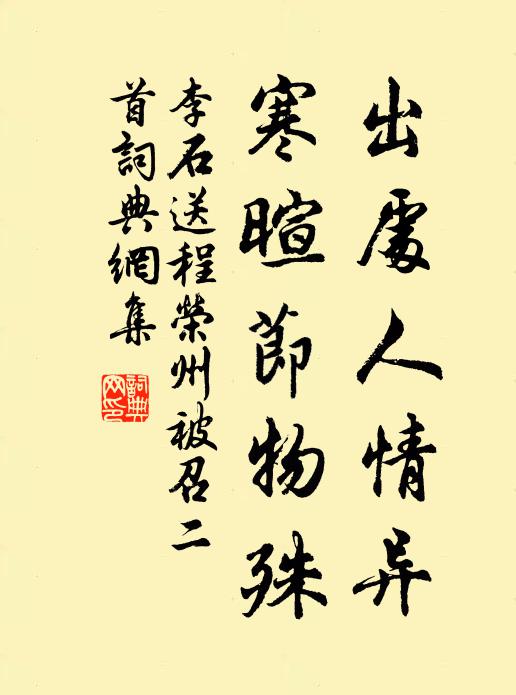 出處人情异
寒暄節物殊
李石送程榮州被召二
首詞典網集
詞典
网印